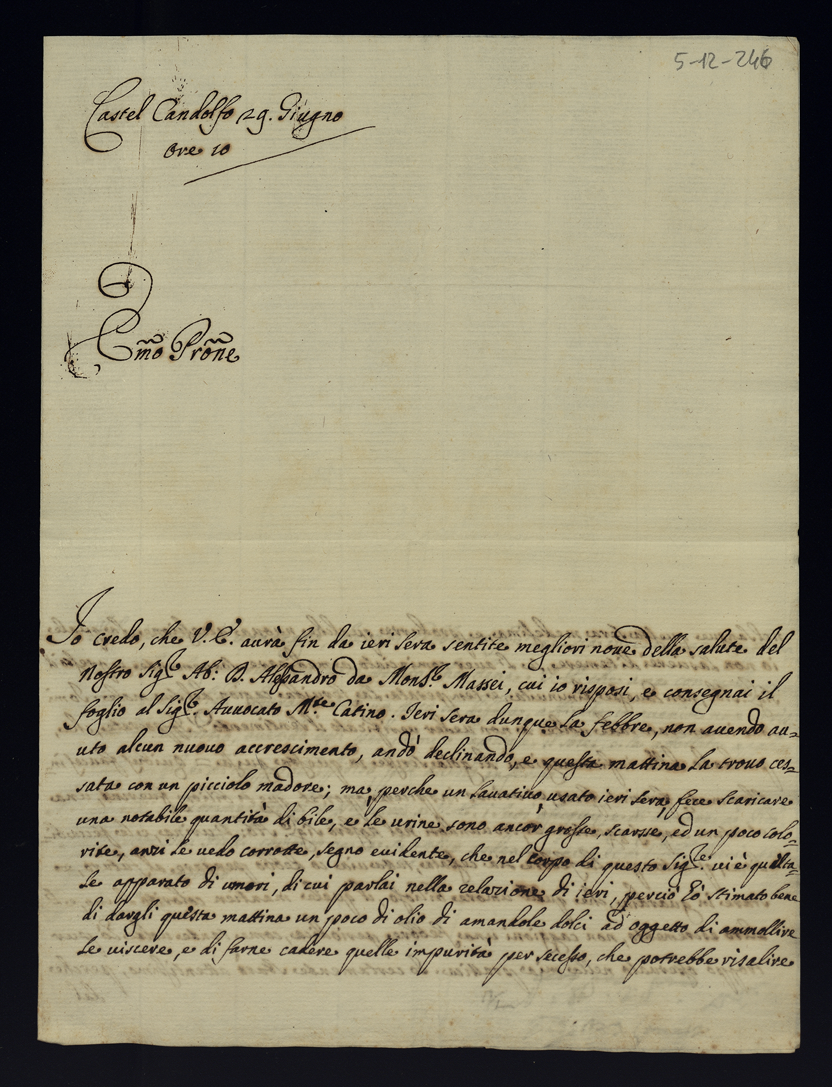 5-12-246
Castel Gandolfo 29. Giugno
Ore 10
Emo Prone
Io credo, che V. E. aurà fin da ieri sera sentite megliori noue della salute del
Nostro Sigre Ab: D. Alessandro da Monsre Massei, cui io risposi, e consegnai il
foglio al Sigre Auuocato Mte Catino. Ieri sera dunque la febbre, non auendo au=
uto alcun nuouo accrescimento, andò declinando, e questa mattina la trouo ces=
sata con un picciolo madore; ma perche un lauatiuo, usato ieri sera, fece scaricare
una notabile quantità di bile, e le urine sono ancor grosse, scarse, ed un poco colo=
rite, anzi le uedo corrotte, segno euidente, che nel corpo di questo Sigre. ui è quella
le apparato di umori, di cui parlai nella relazione di ieri, perciò hò stimato bene
di dargli questa mattina un poco di olio di amandole dolci ad oggetto di ammollire
le uiscere, e di farne cadere quelle impurità per secesso, che potrebbe risalire